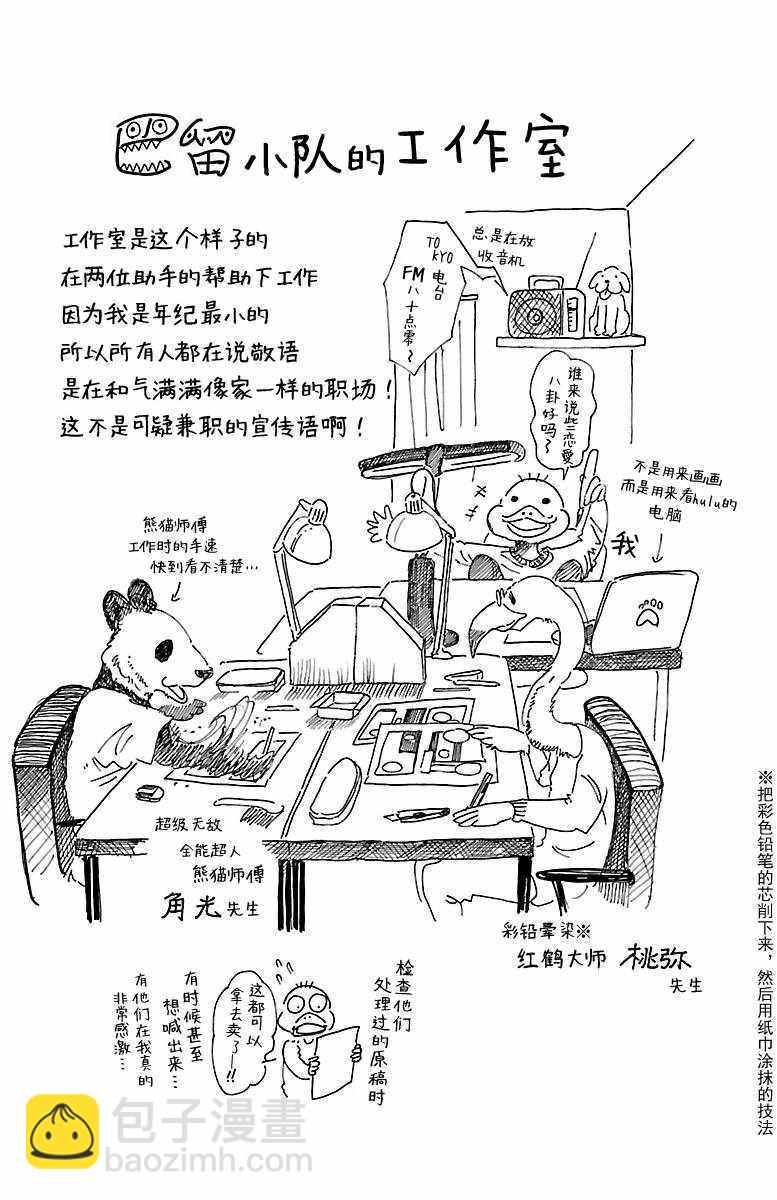 巴留小队的工作室
工作室是这个样子的
在两位助手的帮助下工作
因为我是年纪最小的
所以所有人都在说敬语
是在和气满满像家一样的职场！
这不是可疑兼职的宣传语啊！
TO
KYO
FM
电台
八十点零～
总是在放
收音机
谁来说些恋爱
八卦好吗～
我
不是用来画画
而是用来看hulu的
电脑
熊猫师傅
工作时的手速
快到看不清楚…
超级无敌
全能超人
熊猫师傅
角光先生
彩铅晕染※
红鹤大师 桃弥
先生
※把彩色铅笔的芯削下来，然后用纸巾涂抹的技法
检查他们
处理过的原稿时
这都可以
拿去卖了！！
有时候甚至
想喊出来…
有他们在我真的
非常感激…
包子漫畫
baozimh.com